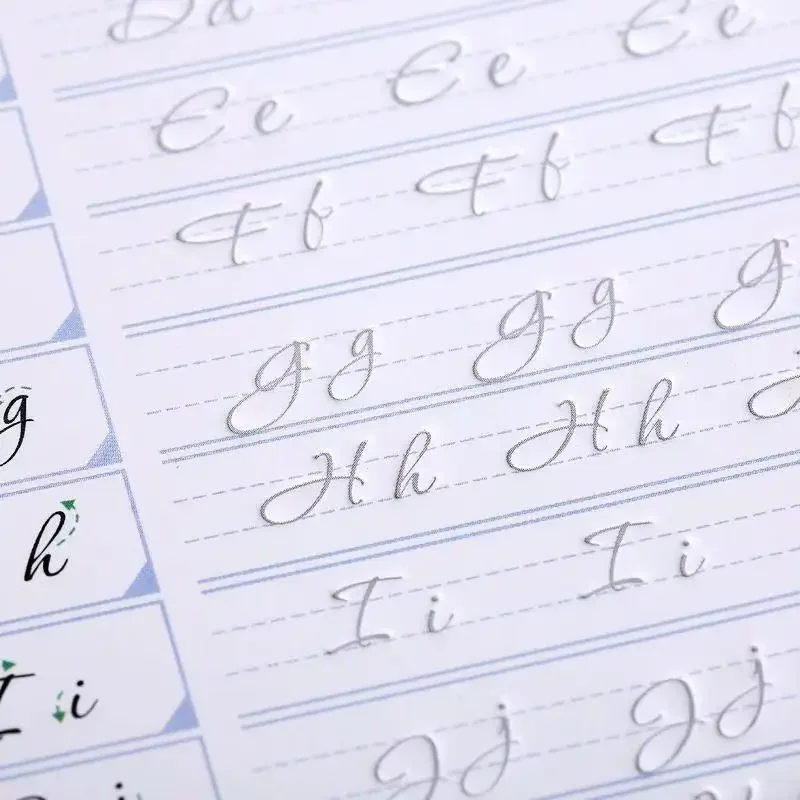 Da
Ee Ee Ee
Ff Ff Ff
g Gg Gg G
h Hh Hh
I i Ii Ii
Jj Jj